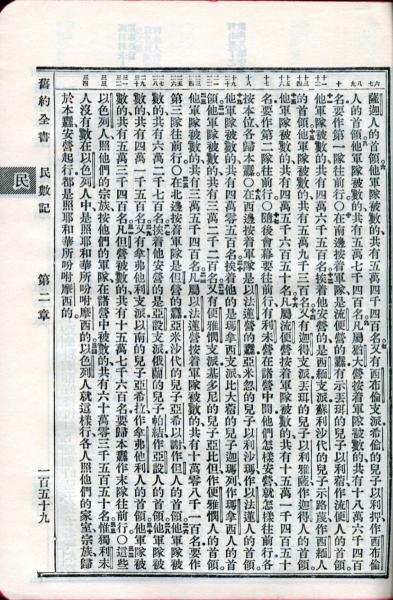 舊約全書 民數記 第二章 一百五十九
民
薩迦人的首領他軍隊被數的、共有五萬四千四百名○又有西布倫支派希倫的兒子以利押作西布倫
人的首領他軍隊被數的、共有五萬七千四百名凡屬猶大營按着軍隊被數的、共有十八萬六千四百
名要作第一隊往前行○在南邊按着軍隊是流便營的纛有示丟珥的兒子以利蓿作流便人的首領
他軍隊被數的、共有四萬六千五百名挨着他安營的是西緬支派蘇利沙代的兒子示路蔑作西緬人
的首領他軍隊被數的、共有五萬九千三百名又有迦得支派丟珥的兒子以利雅薩作迦得人的首領
他軍隊被數的、共有四萬五千六百五十名凡屬流便營按着軍隊被數的、共有十五萬一千四百五十
名要作第二隊往前行○隨後會幕要往前行有利未營在諸營中間他們怎樣安營就怎樣往前行各
按本位各歸本纛○在西邊按着軍隊是以法蓮營的纛亞米忽的兒子以利沙瑪作以法蓮人的首領
他軍隊被數的、共有四萬零五百名挨着他的是瑪拿西支派比大蓿的兒子迦瑪列作瑪拿西人的首
領他軍隊被數的、共有三萬二千二百名又有便雅憫支派基多尼的兒子亞比但作便雅憫人的首領
他軍隊被數的、共有三萬五千四百名凡屬以法蓮營按着軍隊被數的、共有十萬零八千一百名要作
第三隊往前行○在北邊按着軍隊是但營的纛亞米沙代的兒子亞希以謝作但人的首領他軍隊被
數的、共有六萬二千七百名挨着他安營的是亞設支派俄蘭的兒子帕結作亞設人的首領他軍隊被
數的、共有四萬一千五百名又有拿弗他利支派以南的兒子亞希拉作拿弗他利人的首領他軍隊被
數的、共有五萬三千四百名凡但營被數的、共有十五萬七千六百名要歸本纛作末隊往前行○這些
以色列人照他們的宗族按他們的軍隊在諸營中被數的、共有六十萬零三千五百五十名惟獨利未
人沒有數在以色列人中是照耶和華所吩咐摩西的以色列人就這樣行各人照他們的家室宗族歸
於本纛安營起行都是照耶和華所吩咐摩西的